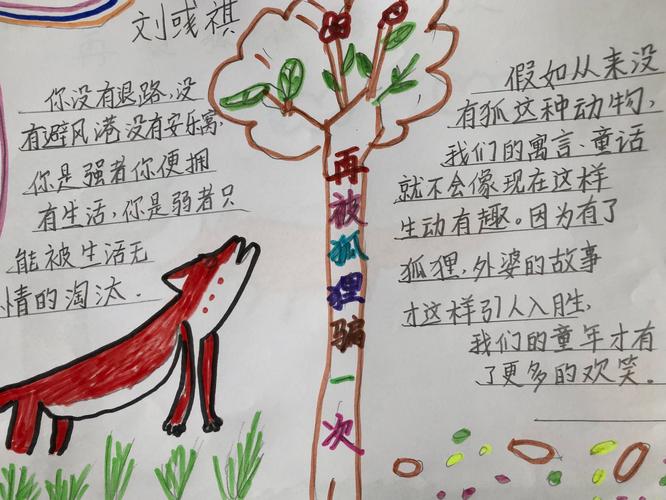 刘彧祺
你没有退路,没
有避风港没有安乐窝,
你是强者你便拥
有生活,你是弱者只
能被生活无
情的淘汰.
再被狐狸骗一次
假如从来没
有狐这种动物,
我们的寓言、童话
就不会像现在这样
生动有趣。因为有了
狐狸,外婆的故事
才这样引人入胜,
我们的童年才有
了更多的欢笑。